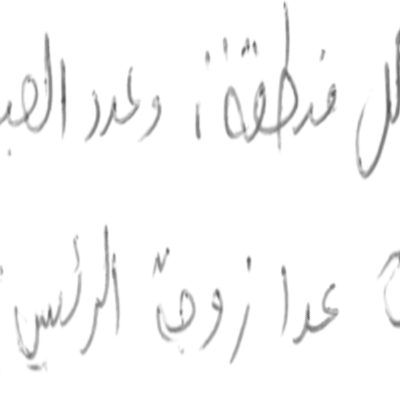 كل منطقة؛ وعدد
عدا زوجة الرئيس